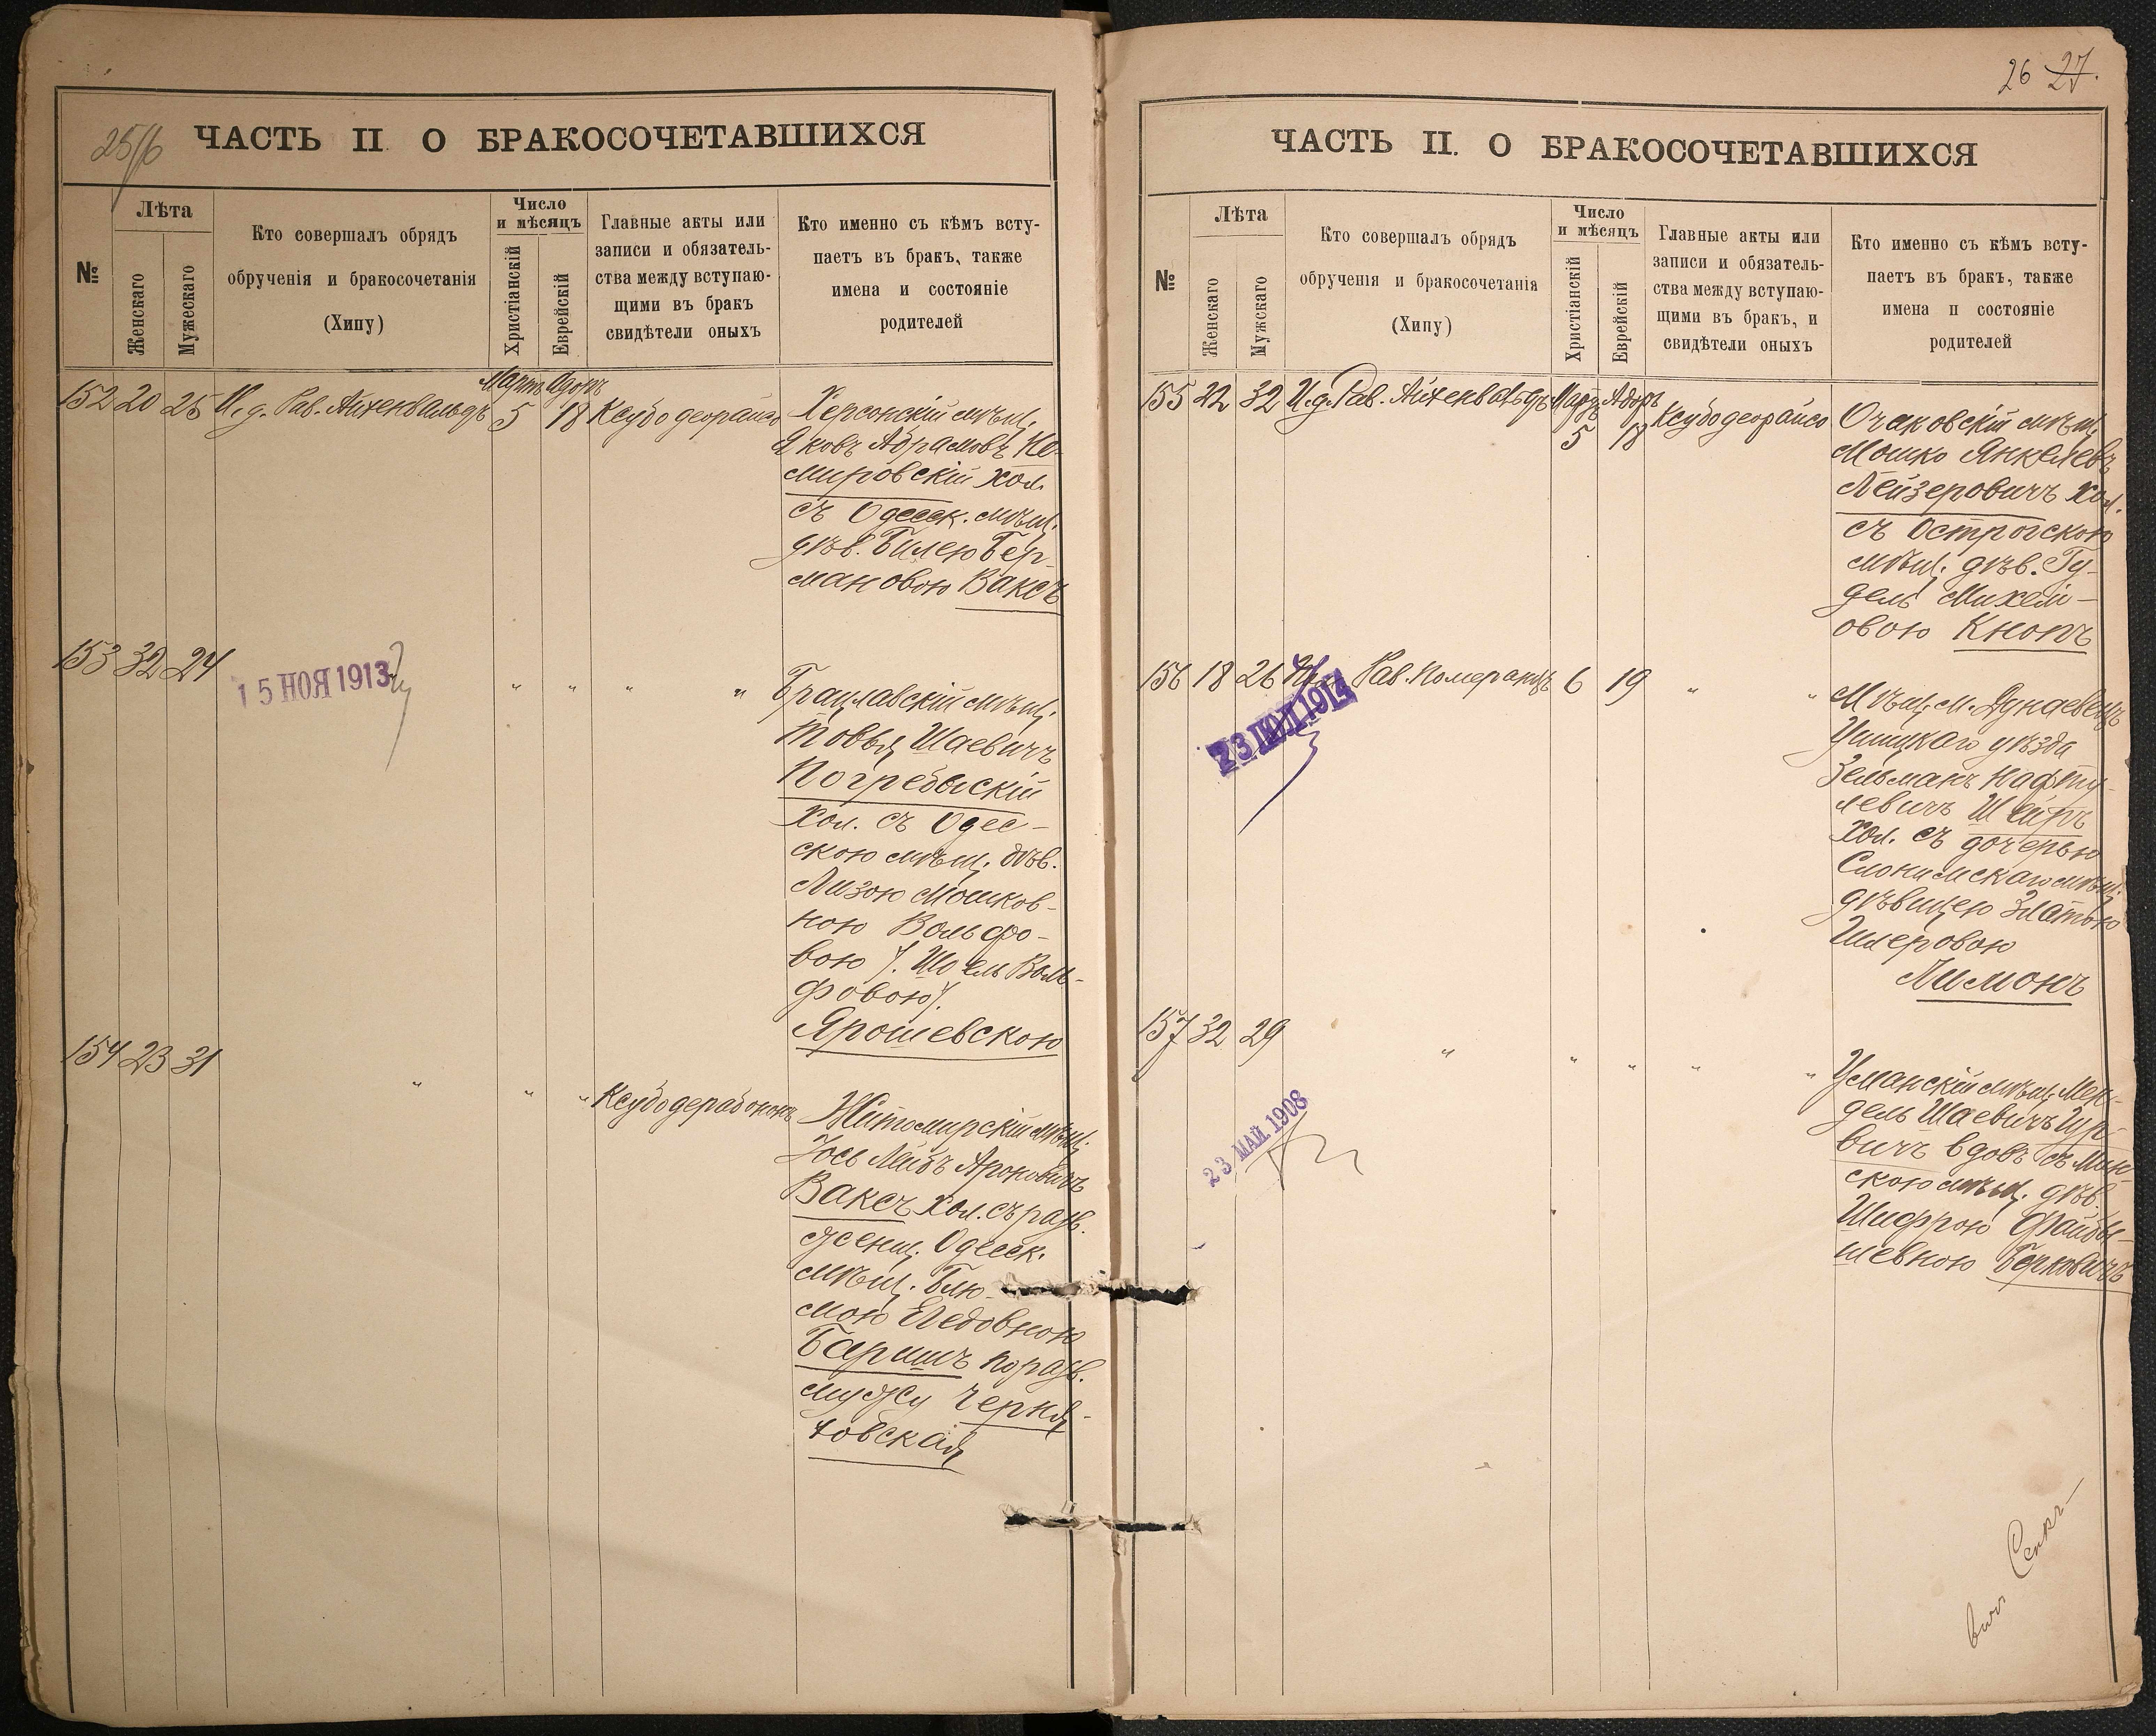 25/6
ЧАСТЬ II О БРАКОСОЧЕТАВШИХСЯ
№
Лѣта
Женскаго
Мужескаго
Кто совершалъ обрядъ
обрученія и бракосочетанія
(Хипу)
Число
и мѣсяцъ
Христіанскій
Еврейскій
Главные акты или
записи и обязатель-
ства между вступаю-
щими въ бракъ
свидѣтели оныхъ
Кто именно съ кѣмъ всту-
паетъ въ бракъ, также
имена и состояніе
родителей
152 20 25 И. д. Рав. Айхенвальдъ Мартъ 5 Адоръ 18 Ксубо деорайсо
Херсонскій мѣщ.
Яковъ Абрамовъ Не-
мировскій хол.
съ Одесск. мѣщ.
дѣв. Билею Бер-
мановоюВаксъ
153 32 24 " " " "
15 НОЯ 1913
Брацлавскій мѣщ.
Товья Шаевичъ
Погребыскій
хол. съ Одес-
скою мѣщ. дѣв.
Лизою Мошков-
ною Вольфо-
вою /. Шоель Воль-
фовою/.
Ярошевскою
154 23 31 " " " Ксубо дерабононъ
Житомирскій мѣщ.
Іось Лейбъ Ароновичъ
Ваксъ хол. съ разв.
женщ. Одесск.
мѣщ. Блю-
мою
Баришъ по разв.
мужу Черня-
ховская
26 27.
ЧАСТЬ II. О БРАКОСОЧЕТАВШИХСЯ
№
Лѣта
Женскаго
Мужскаго
Кто совершалъ обрядъ
обрученія и бракосочетанія
(Хипу)
Число
и мѣсяцъ
Христіанскій
Еврейскій
Главные акты или
записи и обязатель-
ства между вступаю-
щими въ бракъ, и
свидѣтели оныхъ
Кто именно съ кѣмъ всту-
паетъ въ бракъ, также
имена и состояніе
родителей
155 22 32 И. д. Рав. Айхенвальдъ Мартъ 5 Адоръ 18 Ксубо деорайсо
Очаковскій мѣщ.
Мошко Янкелевъ
Лейзеровичъ хол.
съ Острогскою
мѣщ. дѣв. Гу-
дель Михель-
овою Кнопъ
156 18 26 Рав. Померанцъ 6 19 " "
23 ІЮЛ 1914
Мѣщ. м. Дунаевецъ
Ушицкаго уѣзда
Зельманъ Нафту-
левичъ Шейръ
хол. съ дочерью
Слонимскаго мѣщ.
дѣвицею Златою
Шлеровою
Лимонъ
157 32 29 " " " " "
23 МАЙ 1908
Уманскій мѣщ. Мен-
дель Шаевичъ Гур-
вичъ вдов. съ Мин-
скою мѣщ. дѣв.
Шифрою Файвы-
шевною Берковичъ